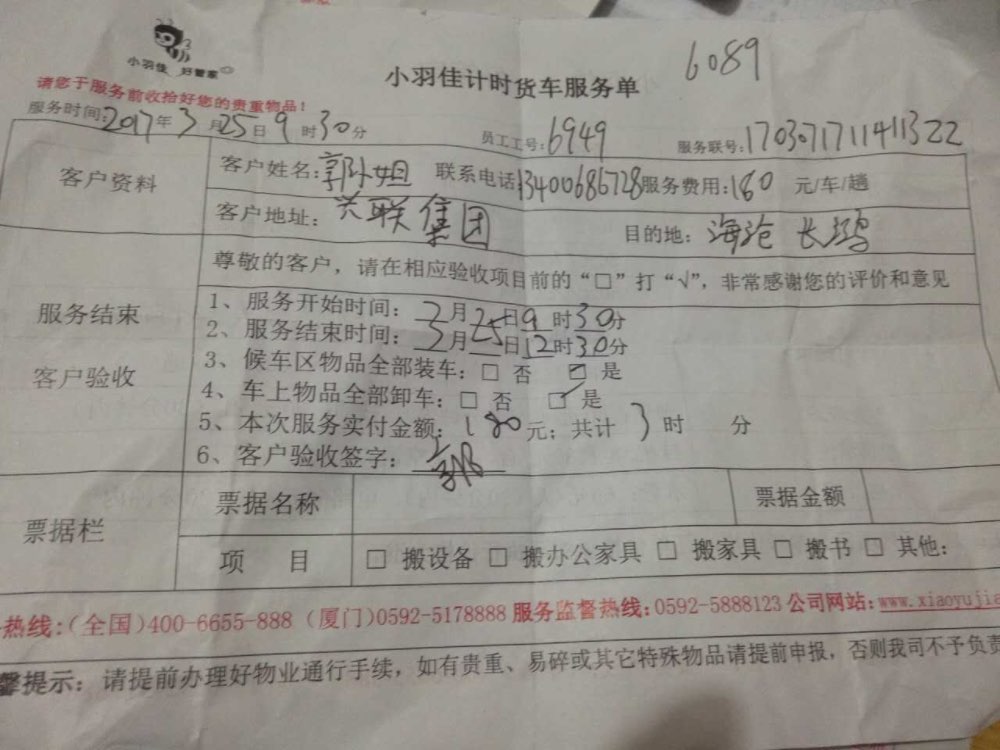 6089
小羽佳 好管家
小羽佳计时货车服务单
请您于服务前收拾好您的贵重物品！
服务时间:2017年3月25日9时30分 员工工号:6949 服务联号:170307171141322
客户资料
客户姓名:郭小姐 联系电话13400686728服务费用:180 元/车/趟
客户地址: 兴联集团 目的地: 海沧 长鸿
服务结束
客户验收
尊敬的客户，请在相应验收项目前的“□”打“√”，非常感谢您的评价和意见
1、服务开始时间: 3月25日9时30分
2、服务结束时间: 3月 日12时30分
3、候车区物品全部装车: □ 否 ☑ 是
4、车上物品全部卸车: □ 否 ☑ 是
5、本次服务实付金额: 180元; 共计 3 时 分
6、客户验收签字: 郭
票据栏
票据名称 票据金额
项 目 □ 搬设备 □ 搬办公家具 □ 搬家具 □ 搬书 □ 其他:
热线:(全国)400-6655-888 (厦门)0592-5178888 服务监督热线:0592-5888123 公司网站:www.xiaoyujia
馨提示: 请提前办理好物业通行手续，如有贵重、易碎或其它特殊物品请提前申报，否则我司不予负责